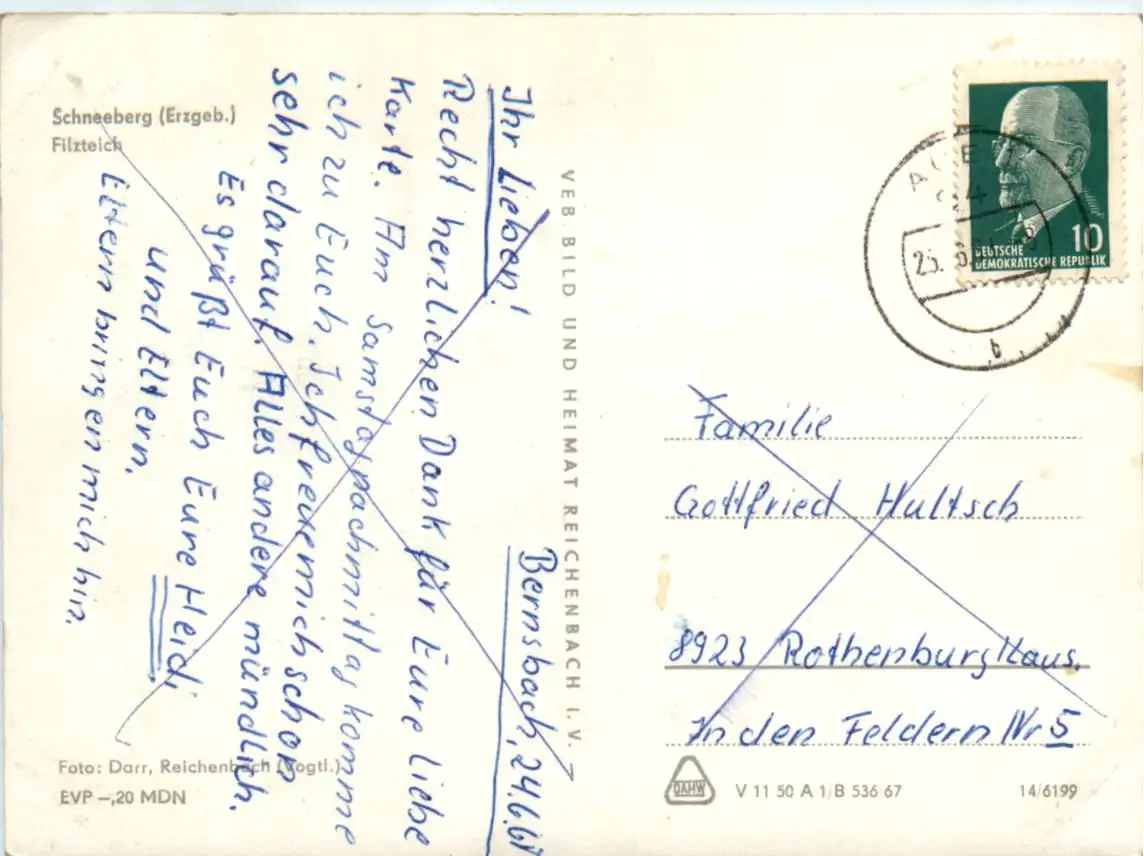 Schneeberg (Erzgeb.)
Filzteich
Bernsbach, 24.6.68
Ihr Lieben!
Recht herzlichen Dank für Eure liebe
Karte. Am Samstagnachmittag komme
ich zu Euch. Ich freue mich schon
sehr darauf. Alles andere mündlich.
Es grüßt Euch Eure Heidi
und Eltern.
Eltern bringen mich hin.
Foto: Darr, Reichenbach (Vogtl.)
EVP –,20 MDN
VEB BILD UND HEIMAT REICHENBACH I. V.
10
DEUTSCHE
DEMOKRATISCHE REPUBLIK
AUE
25. 6.
Familie
Gottfried Hultsch
8923 Rothenburg/Laus.
In den Feldern Nr 5
DAHW
V 11 50 A 1/B 536 67
14/6199